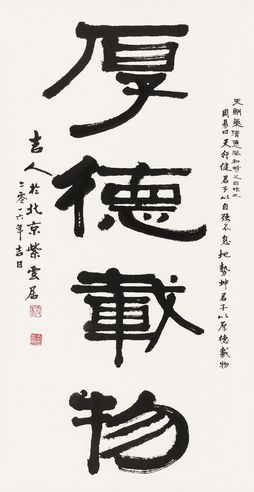 厚德載物
周易曰天行健君子以自強不息地勢坤君子以厚德載物
吉人於北京紫雲居
二零一六年吉日